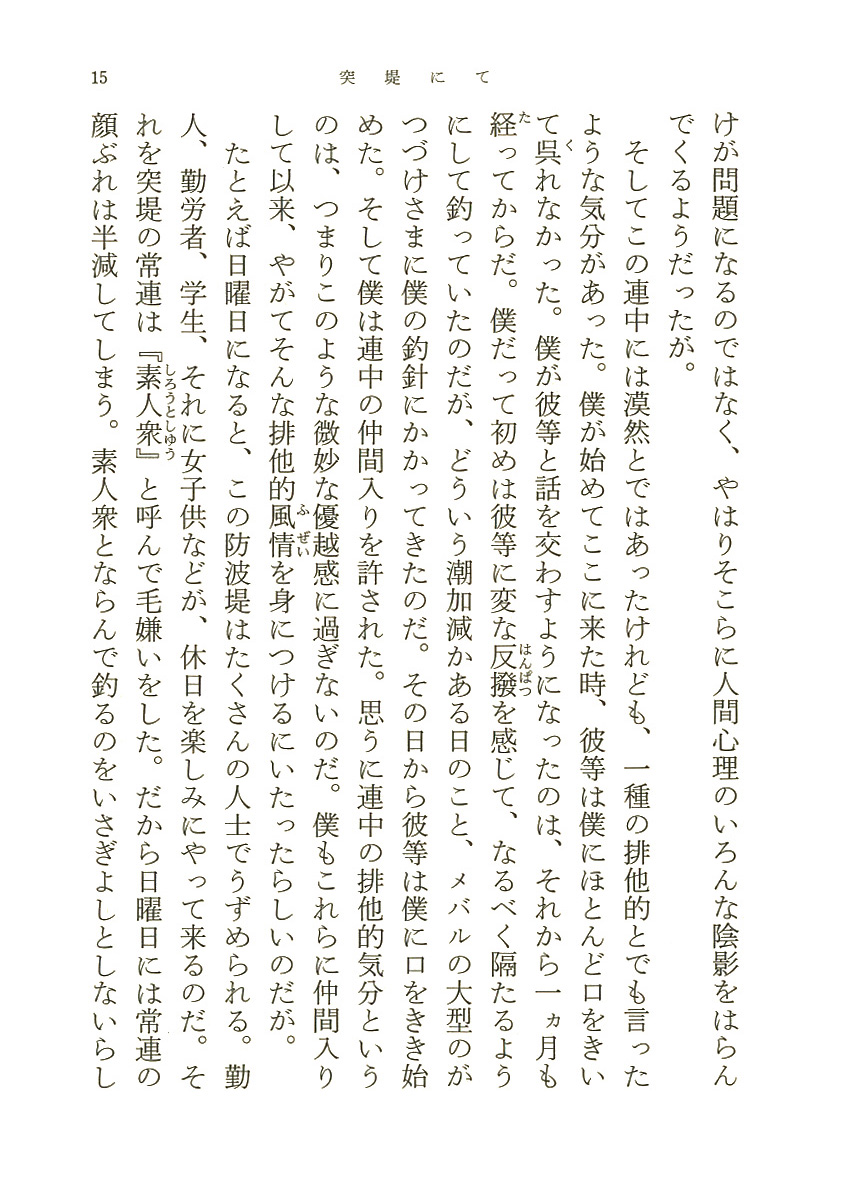 15
突堤にて
けが問題になるのではなく、やはりそこらに人間心理のいろんな陰影をはらん
でくるようだったが。
そしてこの連中には漠然とではあったけれども、一種の排他的とでも言った
ような気分があった。僕が始めてここに来た時、彼等は僕にほとんど口をきい
て呉れなかった。僕が彼等と話を交わすようになったのは、それから一ヵ月も
経ってからだ。僕だって初めは彼等に変な反撥を感じて、なるべく隔たるよう
にして釣っていたのだが、どういう潮加減かある日のこと、メバルの大型のが
つづけさまに僕の釣針にかかってきたのだ。その日から彼等は僕に口をきき始
めた。そして僕は連中の仲間入りを許された。思うに連中の排他的気分という
のは、つまりこのような微妙な優越感に過ぎないのだ。僕もこれらに仲間入り
して以来、やがてそんな排他的風情を身につけるにいたったらしいのだが。
たとえば日曜日になると、この防波堤はたくさんの人士でうずめられる。勤
人、勤労者、学生、それに女子供などが、休日を楽しみにやって来るのだ。そ
れを突堤の常連は『素人衆』と呼んで毛嫌いをした。だから日曜日には常連の
顔ぶれは半減してしまう。素人衆とならんで釣るのをいさぎよしとしないらし